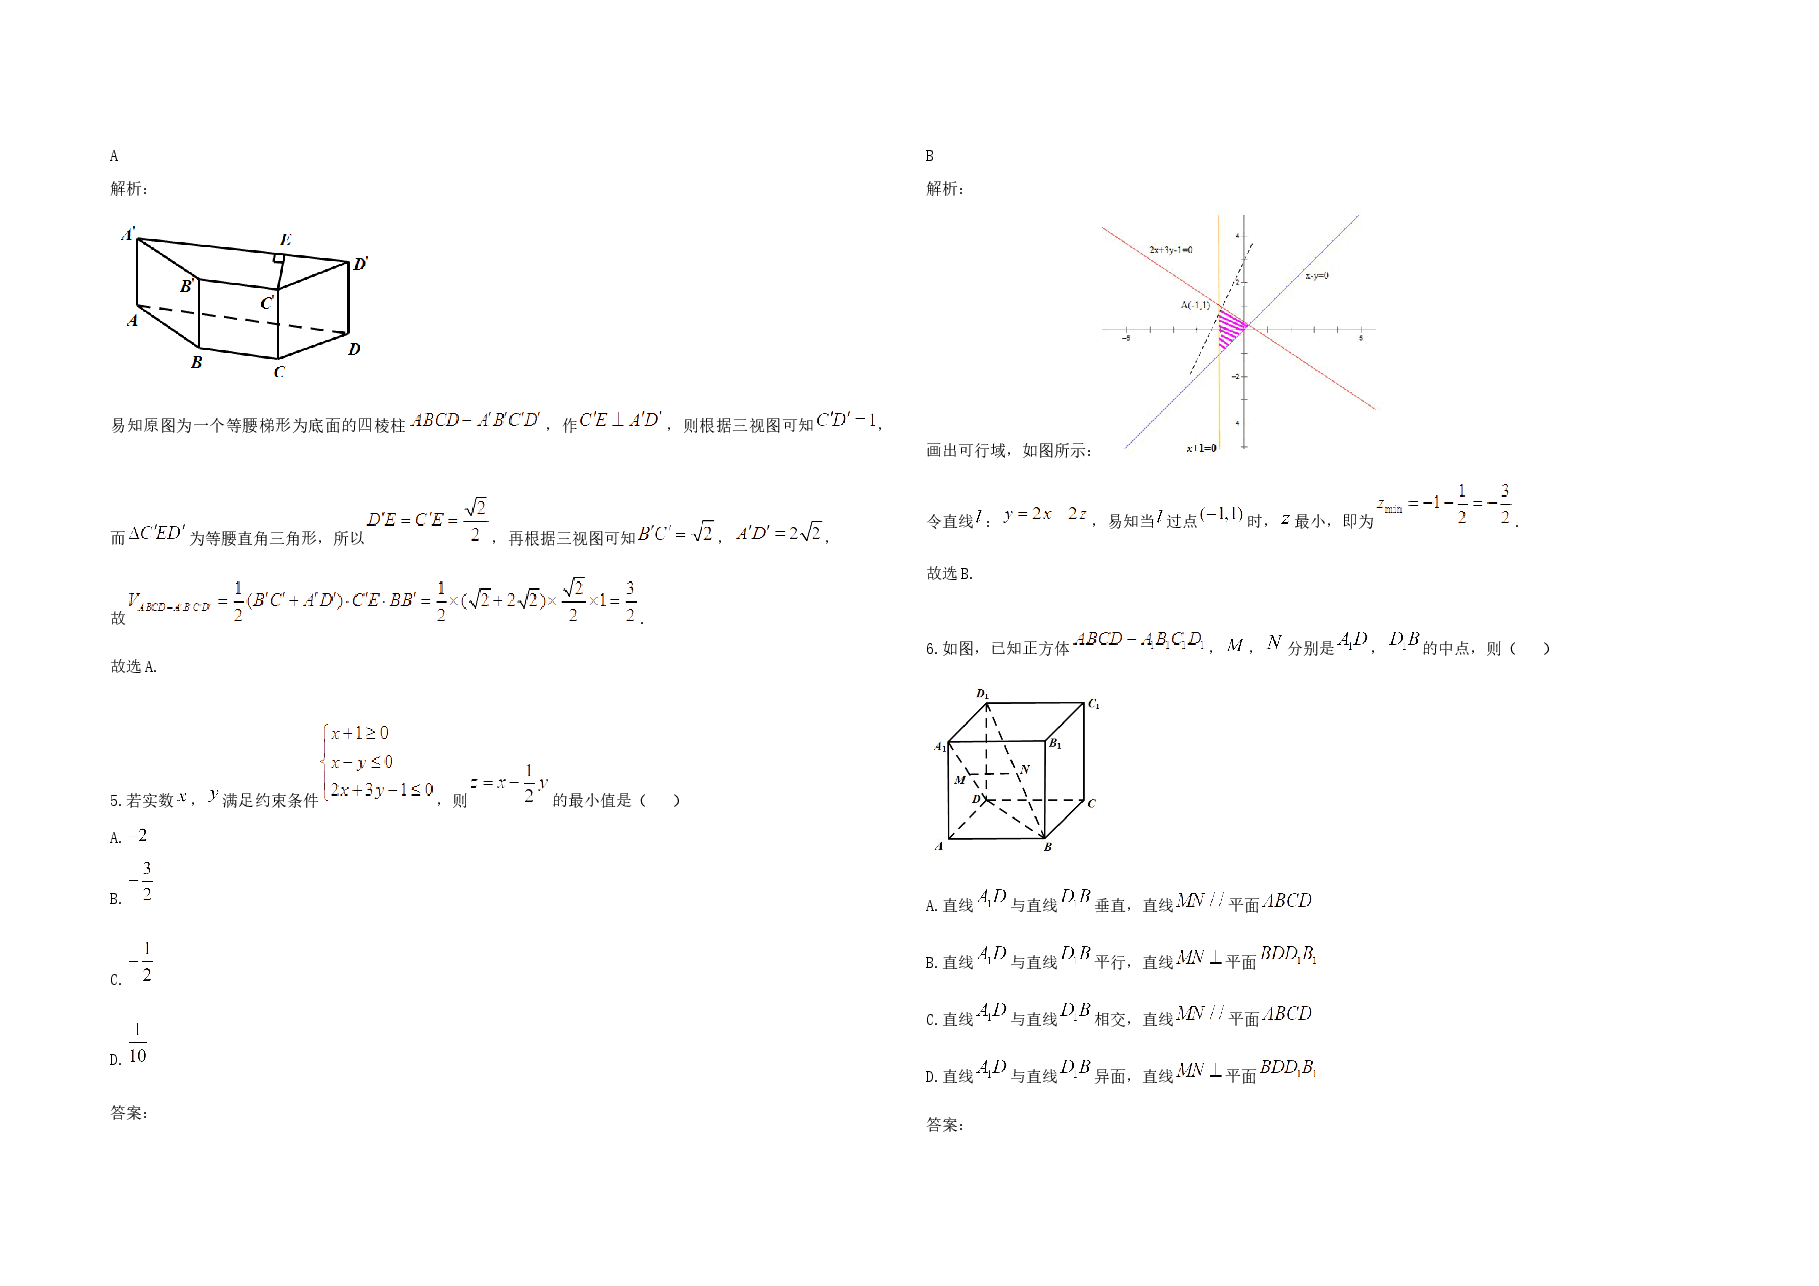 A
解析:
A' E D' B' C' A B D C
易知原图为一个等腰梯形为底面的四棱柱ABCD－A'B'C'D'，作C'E⊥A'D'，则根据三视图可知C'D'=1，
而ΔC'ED'为等腰直角三角形，所以D'E=C'E=√2/2，再根据三视图可知B'C'=√2，A'D'=2√2，
故V_{ABCD-A'B'C'D'}=1/2(B'C'+A'D')·C'E·BB'=1/2×(√2+2√2)×√2/2×1=3/2.
故选A.
5.若实数x，y满足约束条件{x+1≥0 x-y≤0 2x+3y-1≤0，则z=x-1/2y的最小值是（ ）
A.-2
B.-3/2
C.-1/2
D.1/10
答案:
B
解析:
2x+3y-1=0 4 x-y=0 2 A(-1,1) -5 5 -2 4 x+1=0
画出可行域，如图所示:
令直线l：y=2x 2z，易知当l过点(-1,1)时，z最小，即为z_min=-1-1/2=-3/2.
故选B.
6.如图，已知正方体ABCD-A₁B₁C₁D₁，M，N分别是A₁D，D₁B的中点，则（ ）
D₁ C₁ A₁ B₁ M N D C A B
A.直线A₁D与直线D₁B垂直，直线MN//平面ABCD
B.直线A₁D与直线D₁B平行，直线MN⊥平面BDD₁B₁
C.直线A₁D与直线D₁B相交，直线MN//平面ABCD
D.直线A₁D与直线D₁B异面，直线MN⊥平面BDD₁B₁
答案: